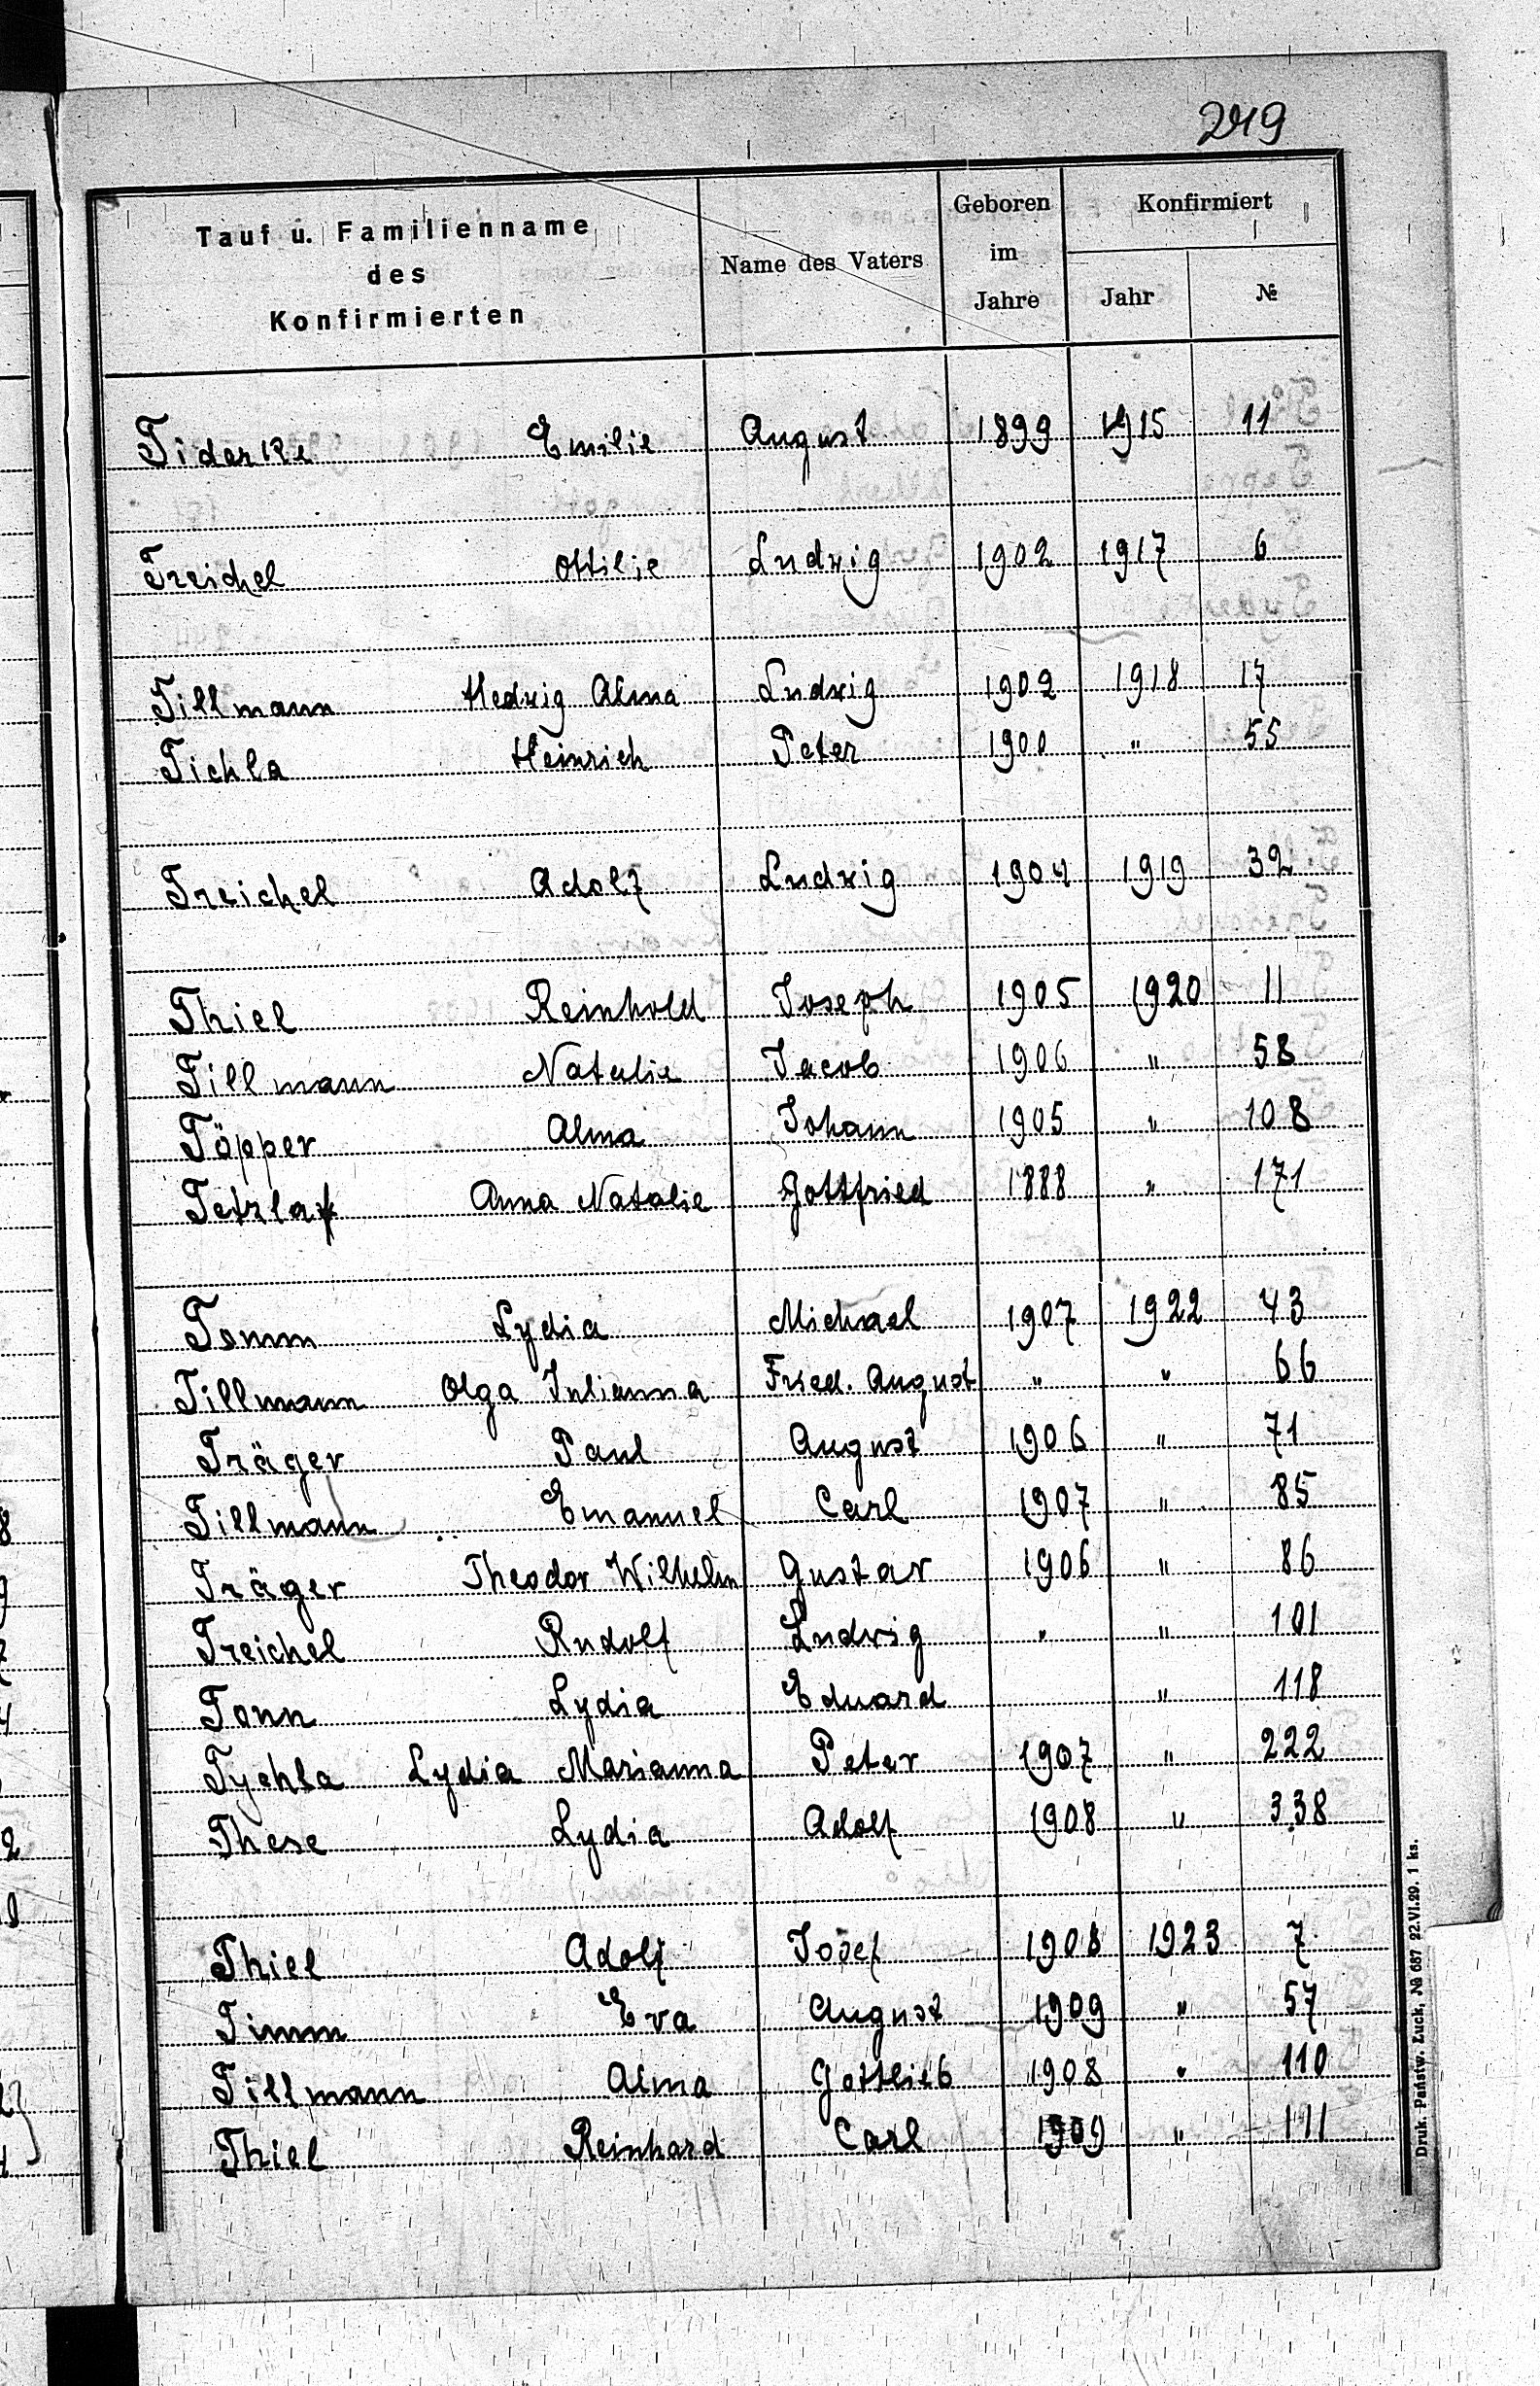 249
Tauf u. Familienname
des
Konfirmierten
Name des Vaters
Geboren
im
Jahre
Konfirmiert
Jahr
№
Tiderke Emilie August 1899 1915 11
Treichel Ottilie Ludwig 1902 1917 6
Tillmann Hedwig Alma Ludwig 1902 1918 17
Tichla Heinrich Peter 1900 " 55
Treichel Adolf Ludwig 1904 1919 32
Thiel Reinhold Joseph 1905 1920 11
Tillmann Natalie Jacob 1906 " 58
Töpper Alma Johann 1905 " 108
Tetzlaf Anna Natalie Gottfried 1888 " 171
Tomm Lydia Michael 1907 1922 43
Tillmann Olga Julianna Fried. August " " 66
Träger Paul August 1906 " 71
Tillmann Emanuel Carl 1907 " 85
Träger Theodor Wilhelm Gustav 1906 " 86
Treichel Rudolf Ludwig " " 101
Tonn Lydia Eduard " 118
Tychla Lydia Marianna Peter 1907 " 222
These Lydia Adolf 1908 " 338
Thiel Adolf Josef 1908 1923 7
Timm Eva August 1909 " 57
Tillmann Alma Gottlieb 1908 " 110
Thiel Reinhard Carl 1909 " 111
Druk. Państw. Łuck, № 687 22.VI.29. 1 ks.